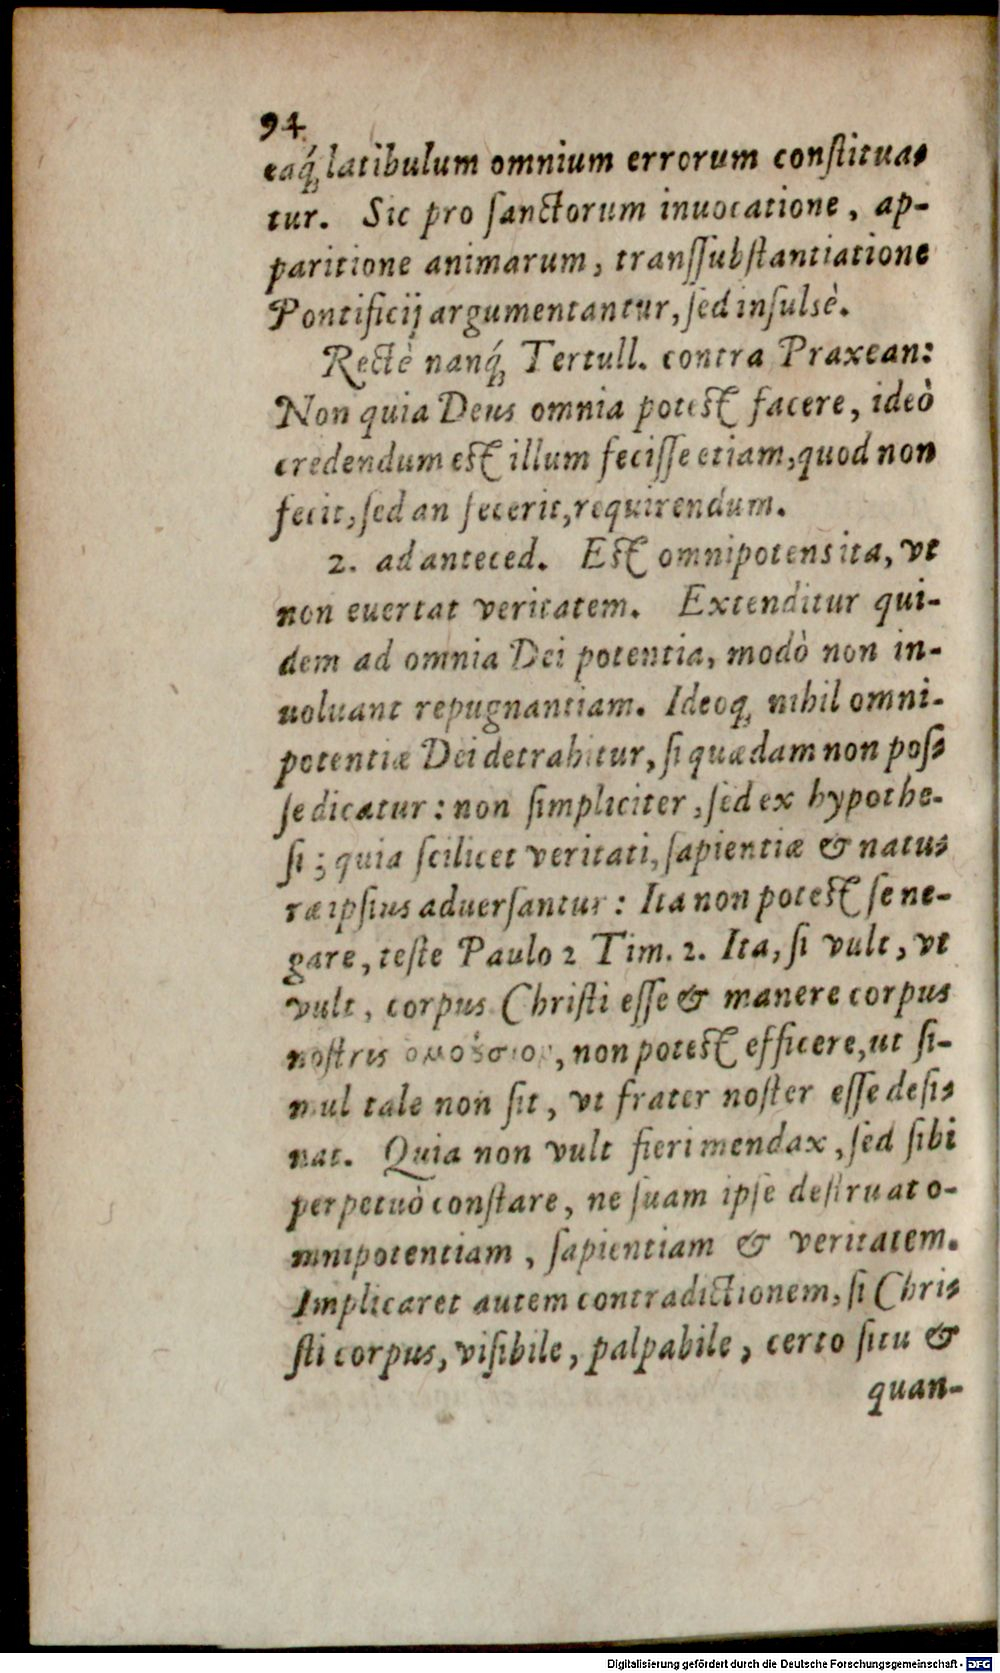 94
eaq́ꝫ latibulum omnium errorum conſtitua-
tur. Sic pro ſanctorum inuocatione, ap-
paritione animarum, transſubſtantiatione
Pontificij argumentantur, ſed inſulsè.
Rectè nanq́ꝫ Tertull. contra Praxean:
Non quia Deus omnia poteſt facere, ideò
credendum eſt illum feciſſe etiam, quod non
fecit, ſed an fecerit, requirendum.
2. ad anteced. Eſt omnipotens ita, vt
non euertat veritatem. Extenditur qui-
dem ad omnia Dei potentia, modò non in-
uoluant repugnantiam. Ideoqꝫ nihil omni-
potentiæ Dei detrahitur, ſi quædam non poſ-
ſe dicatur: non ſimpliciter, ſed ex hypothe-
ſi; quia ſcilicet veritati, ſapientiæ & natu-
ræ ipſius aduerſantur: Ita non poteſt ſe ne-
gare, teſte Paulo 2 Tim. 2. Ita, ſi vult, vt
vult, corpus Chriſti eſſe & manere corpus
noſtris , non poteſt efficere, ut ſi-
mul tale non ſit, vt frater noſter eſſe deſi-
nat. Quia non vult fieri mendax, ſed ſibi
perpetuò conſtare, ne ſuam ipſe deſtruat o-
mnipotentiam, ſapientiam & veritatem.
Implicaret autem contradictionem, ſi Chri-
ſti corpus, viſibile, palpabile, certo ſitu &
quan-
Digitalisierung gefördert durch die Deutsche Forschungsgemeinschaft - DFG